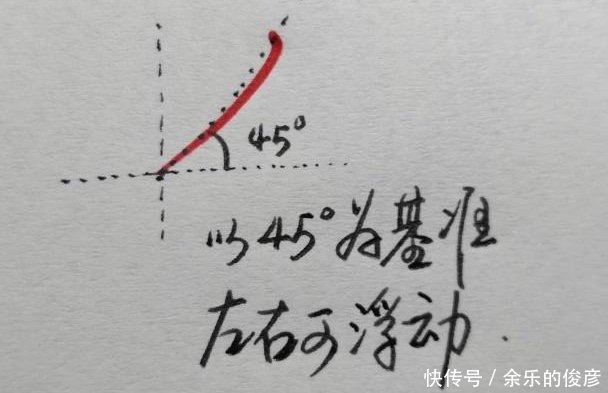 45°
以45°为基准
左右可浮动.
快传号 / 余乐的俊彦